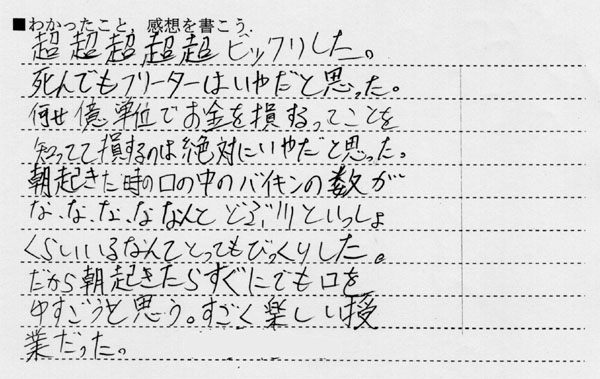 ■わかったこと 感想を書こう
超超超超超ビックリした。
死んでもフリーターはいやだと思った。
何せ億単位でお金を損するってことを
知ってて損するのは絶対にいやだと思った。
朝起きた時の口の中のバイキンの数が
な、な、な、ななんとどぶ川といっしょ
くらいいるなんてとってもびっくりした。
だから朝起きたらすぐにでも口を
ゆすごうと思う。すごく楽しい授
業だった。